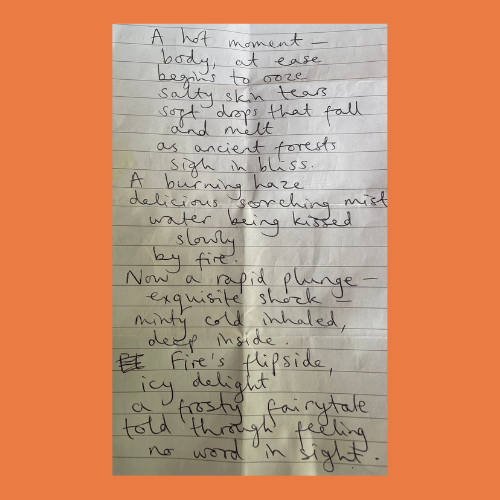 A hot moment –
body, at ease
begins to ooze
salty skin tears
soft drops that fall
and melt
as ancient forests
sigh in bliss.
A burning haze
delicious scorching mist
water being kissed
slowly
by fire.
Now a rapid plunge –
exquisite shock –
minty cold inhaled,
deep inside.
Fire's flipside,
icy delight
a frosty fairytale
told through feeling
no word in sight.